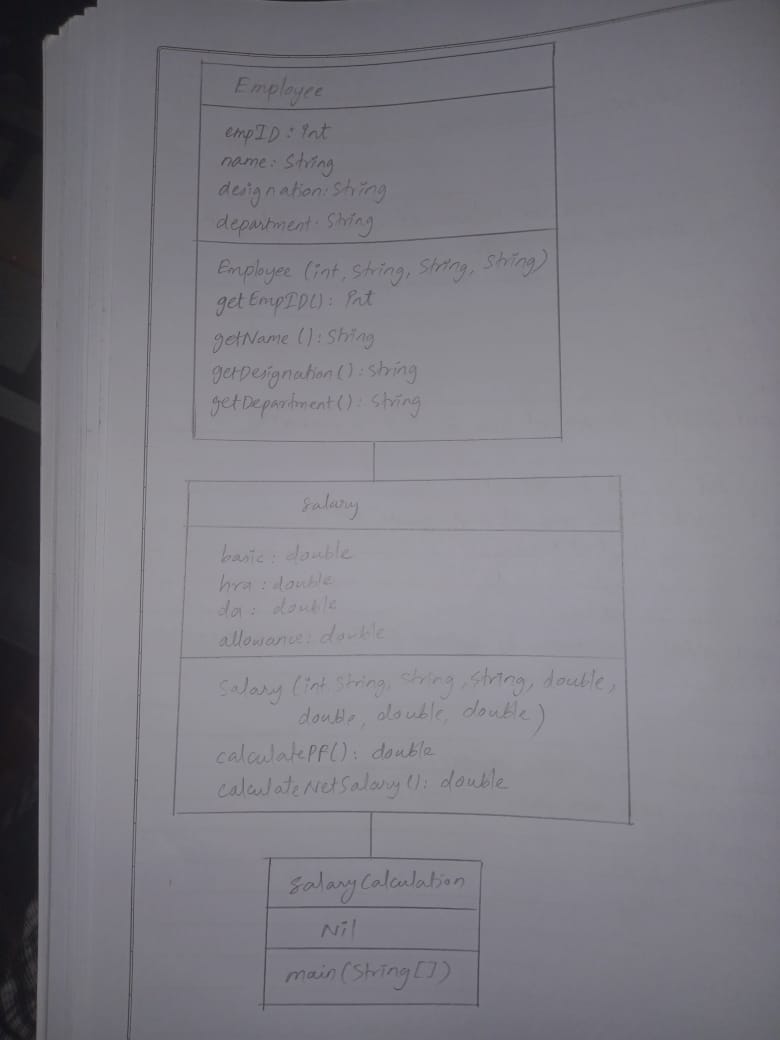 Employee
empID: int
name: String
designation: String
department: String
Employee (int, String, String, String)
getEmpID(): int
getName (): String
getDesignation(): String
getDepartment(): String
Salary
basic: double
hra: double
da: double
allowance: double
Salary (int, String, String, String, double,
double, double, double)
calculatePF(): double
calculateNetSalary(): double
SalaryCalculation
Nil
main(String[])